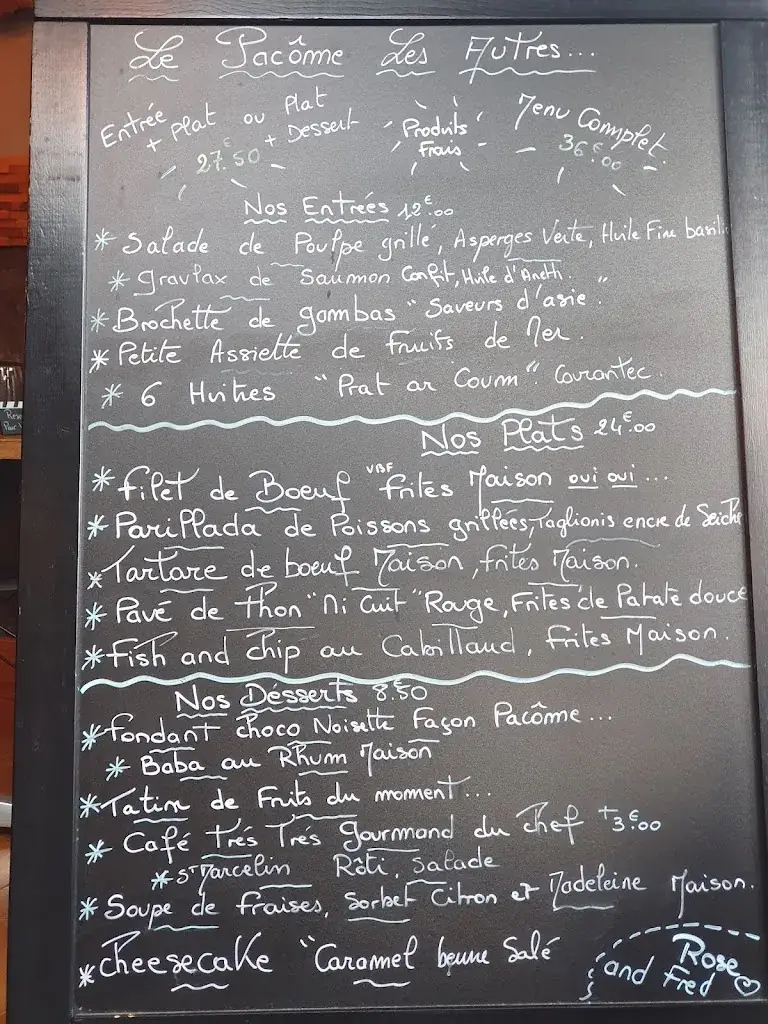 Le Pacôme Les Autres...
Entrée + Plat ou Plat + Dessert
27€50
Produits Frais
Menu Complet.
36€00
Nos Entrées 12€00
* Salade de Poulpe grillé, Asperges Verte, Huile Fine basili
* Gravlax de Saumon Confit, Huile d'Aneth.
* Brochette de gambas "Saveurs d'asie".
* Petite Assiette de fruits de Mer.
* 6 Huitres "Prat ar Coum". Courantec.
Nos Plats 24€00
* Filet de Boeuf VBF frites Maison oui oui...
* Parillada de Poissons grillées, Taglionis encre de Seiche
* Tartare de boeuf Maison, frites Maison.
* Pavé de thon "Mi Cuit" Rouge, Frites de Patate douce
* Fish and chip au Cabillaud, frites Maison.
Nos Désserts 8€50
* Fondant choco Noisette Façon Pacôme...
* Baba au Rhum Maison
* Tatin de Fruits du moment...
* Café Trés Trés Gourmand du Chef +3€00
* St Marcelin Rôti, Salade
* Soupe de fraises, Sorbet Citron et Madeleine Maison.
* Cheesecake "Caramel beurre Salé
Rose
and Fred